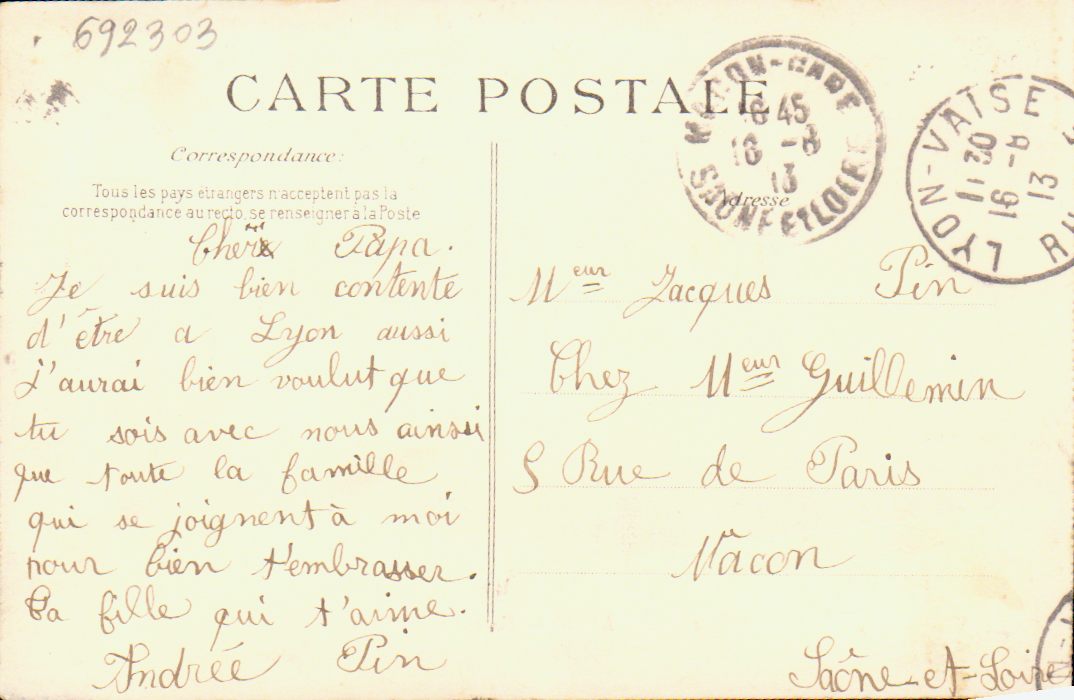 692303
CARTE POSTALE
Correspondance:
Tous les pays étrangers n'acceptent pas la
correspondance au recto, se renseigner à la Poste
Cher Papa.
Je suis bien contente
d'être a Lyon aussi
j'aurai bien voulut que
tu sois avec nous ainssi
que toute la famille
qui se joignent à moi
pour bien t'embrasser.
Ta fille qui t'aime.
Andrée Pin
MACON-GARE
16 45
16 -8
13
SAONE ET LOIRE
Adresse
LYON-VAISE
Meur Jacques Pin
Chez Meur Guillemin
5 Rue de Paris
Macon
Saône-et-Loire